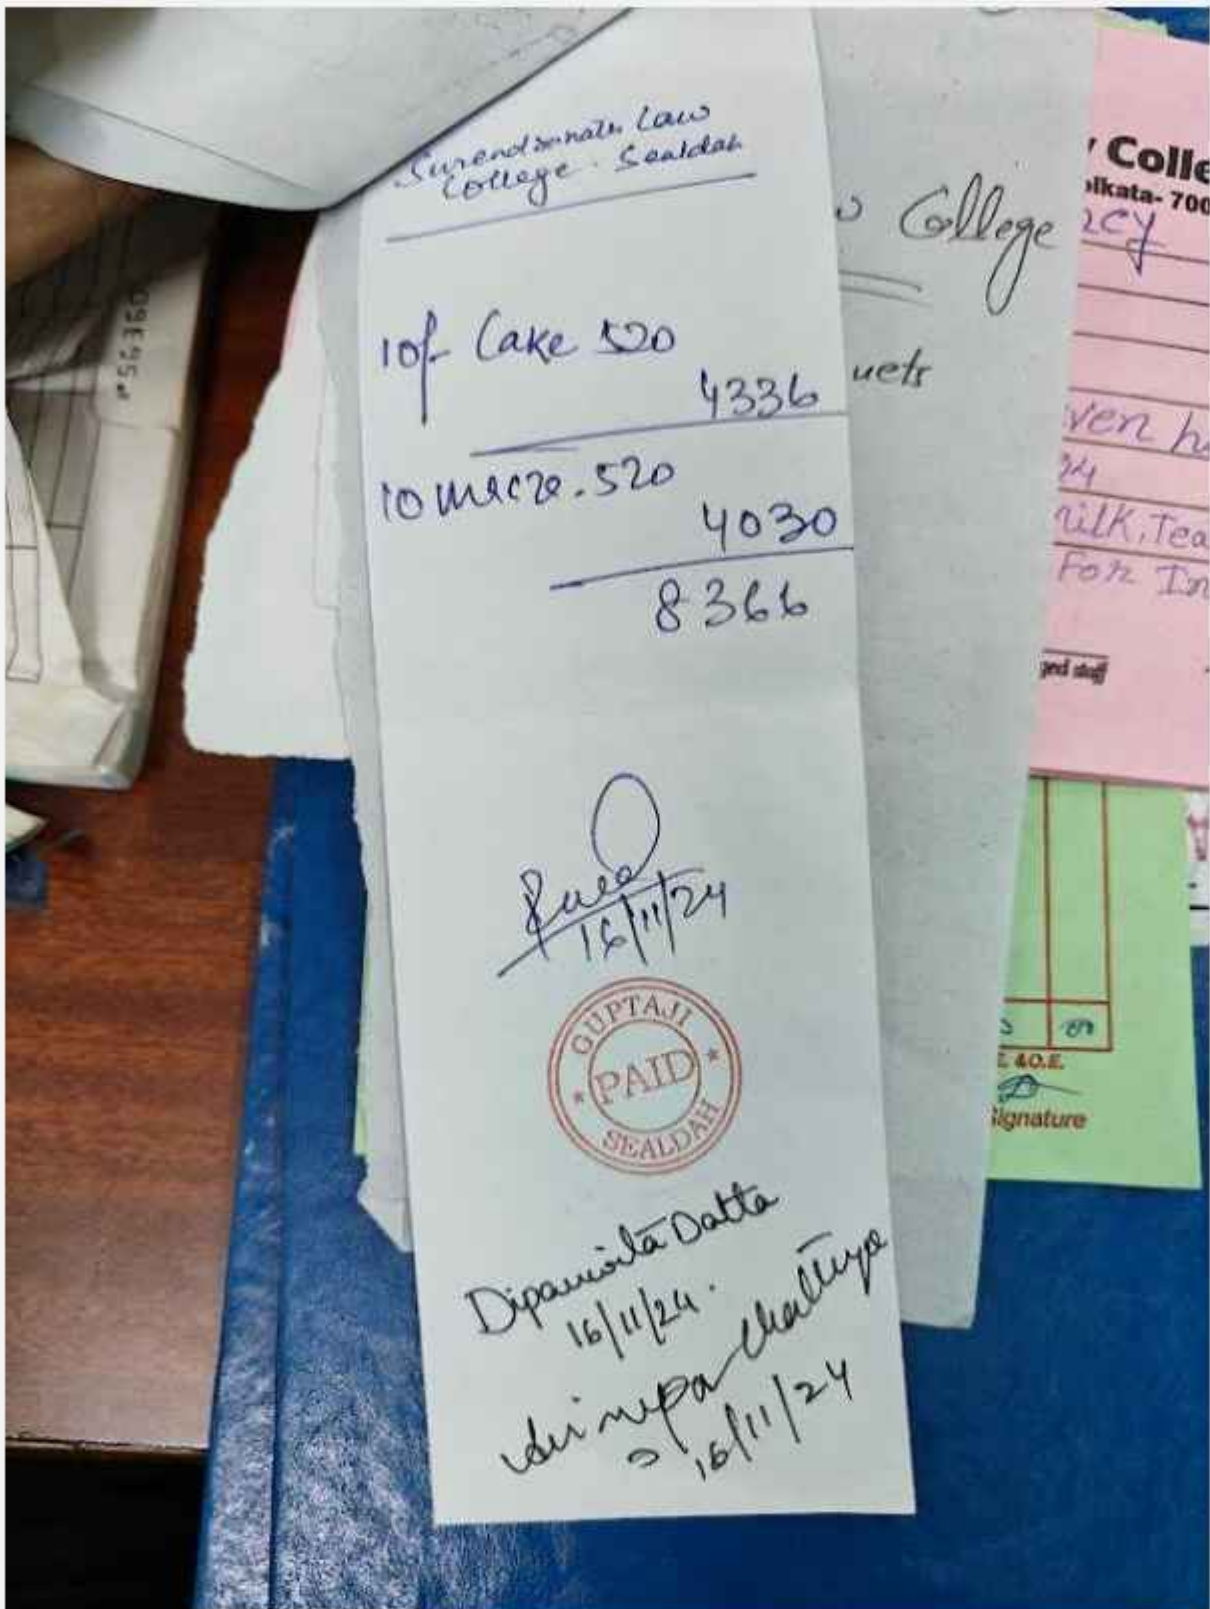 Surendranath Law
College. Sealdah
10f- Cake 520
4336
520
4030
8366
16/11/24
GUPTAJI
PAID
SEALDAH
Dipanwita Datta
16/11/24.
16/11/24
College
uets
Colle
olkata- 700
ven h
24
milk, Tea
For In
ged staff
E. &O.E.
Signature